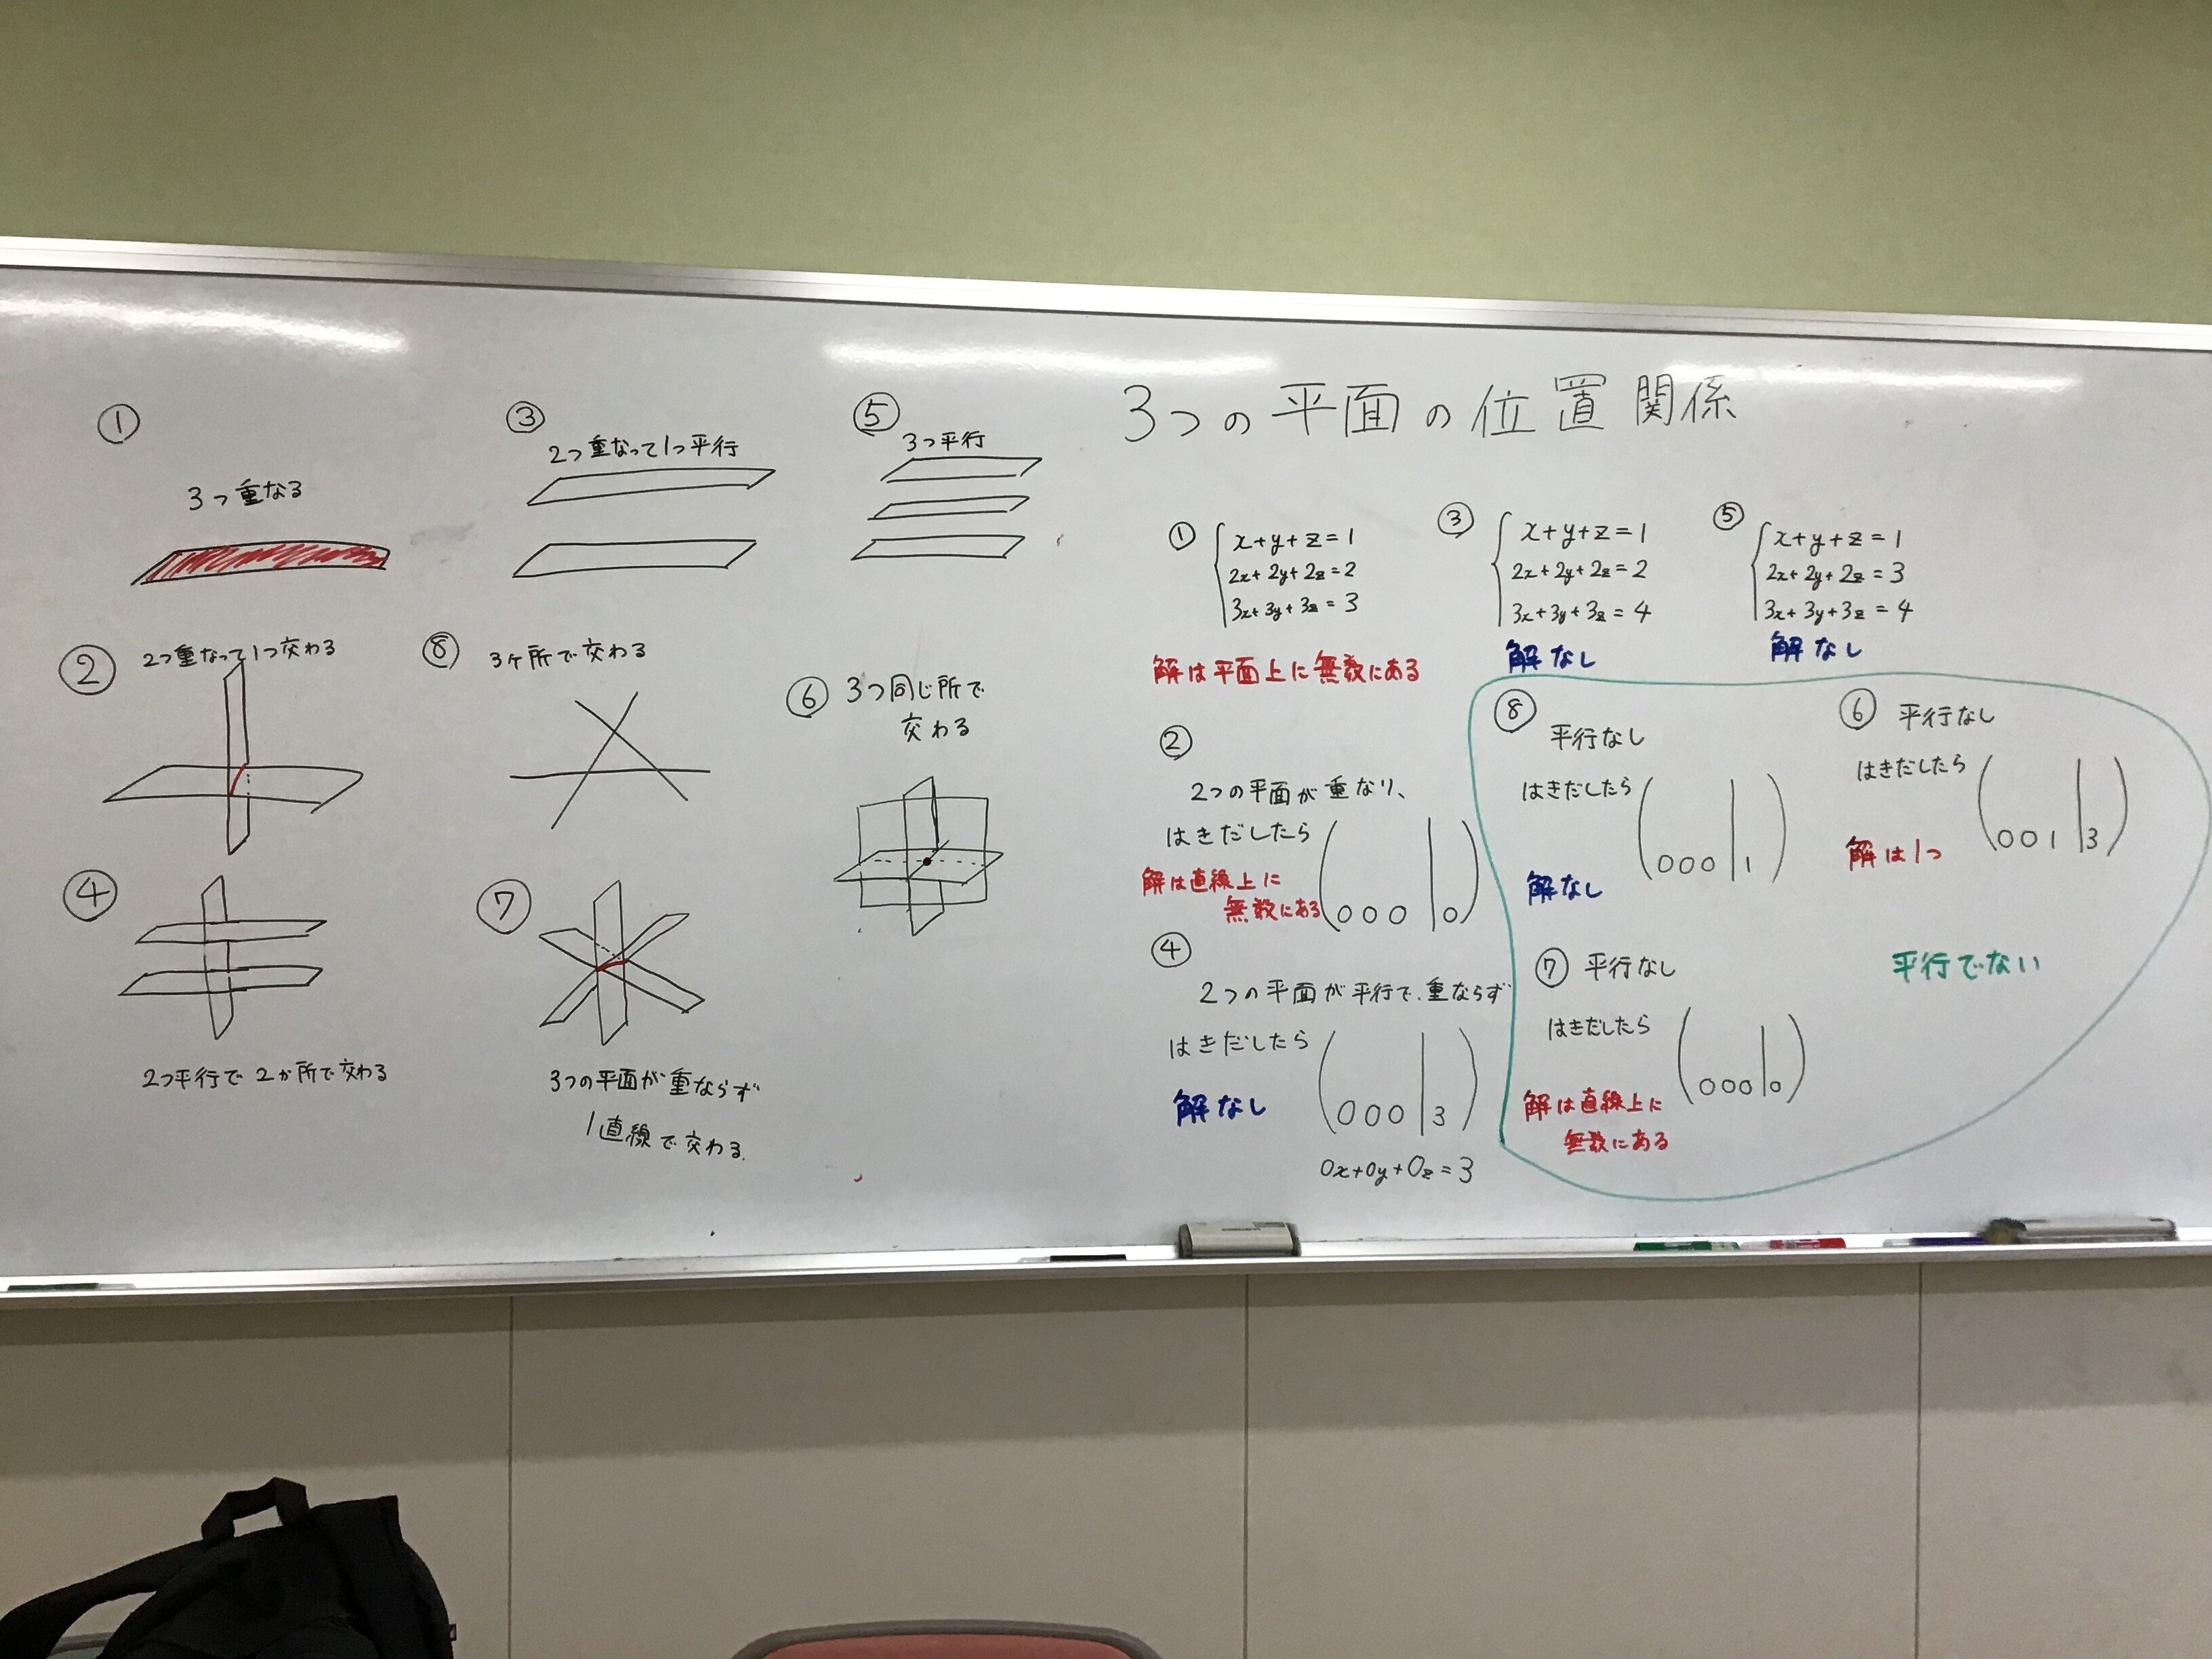 3つの平面の位置関係
①
3つ重なる
③
2つ重なって1つ平行
⑤
3つ平行
② 2つ重なって1つ交わる
⑧ 3ヶ所で交わる
⑥ 3つ同じ所で
交わる
④
2つ平行で2か所で交わる
⑦
3つの平面が重ならず
1直線で交わる.
① x+y+z=1
2x+2y+2z=2
3x+3y+3z=3
解は平面上に無数にある
③ x+y+z=1
2x+2y+2z=2
3x+3y+3z=4
解なし
⑤ x+y+z=1
2x+2y+2z=3
3x+3y+3z=4
解なし
②
2つの平面が重なり、
はきだしたら
解は直線上に
無数にある
(000|0)
④
2つの平面が平行で、重ならず
はきだしたら
解なし
(000|3)
0x+0y+0z=3
⑧
平行なし
はきだしたら
(000|1)
解なし
⑥ 平行なし
はきだしたら
(001|3)
解は1つ
⑦ 平行なし
はきだしたら
(000|0)
解は直線上に
無数にある
平行でない